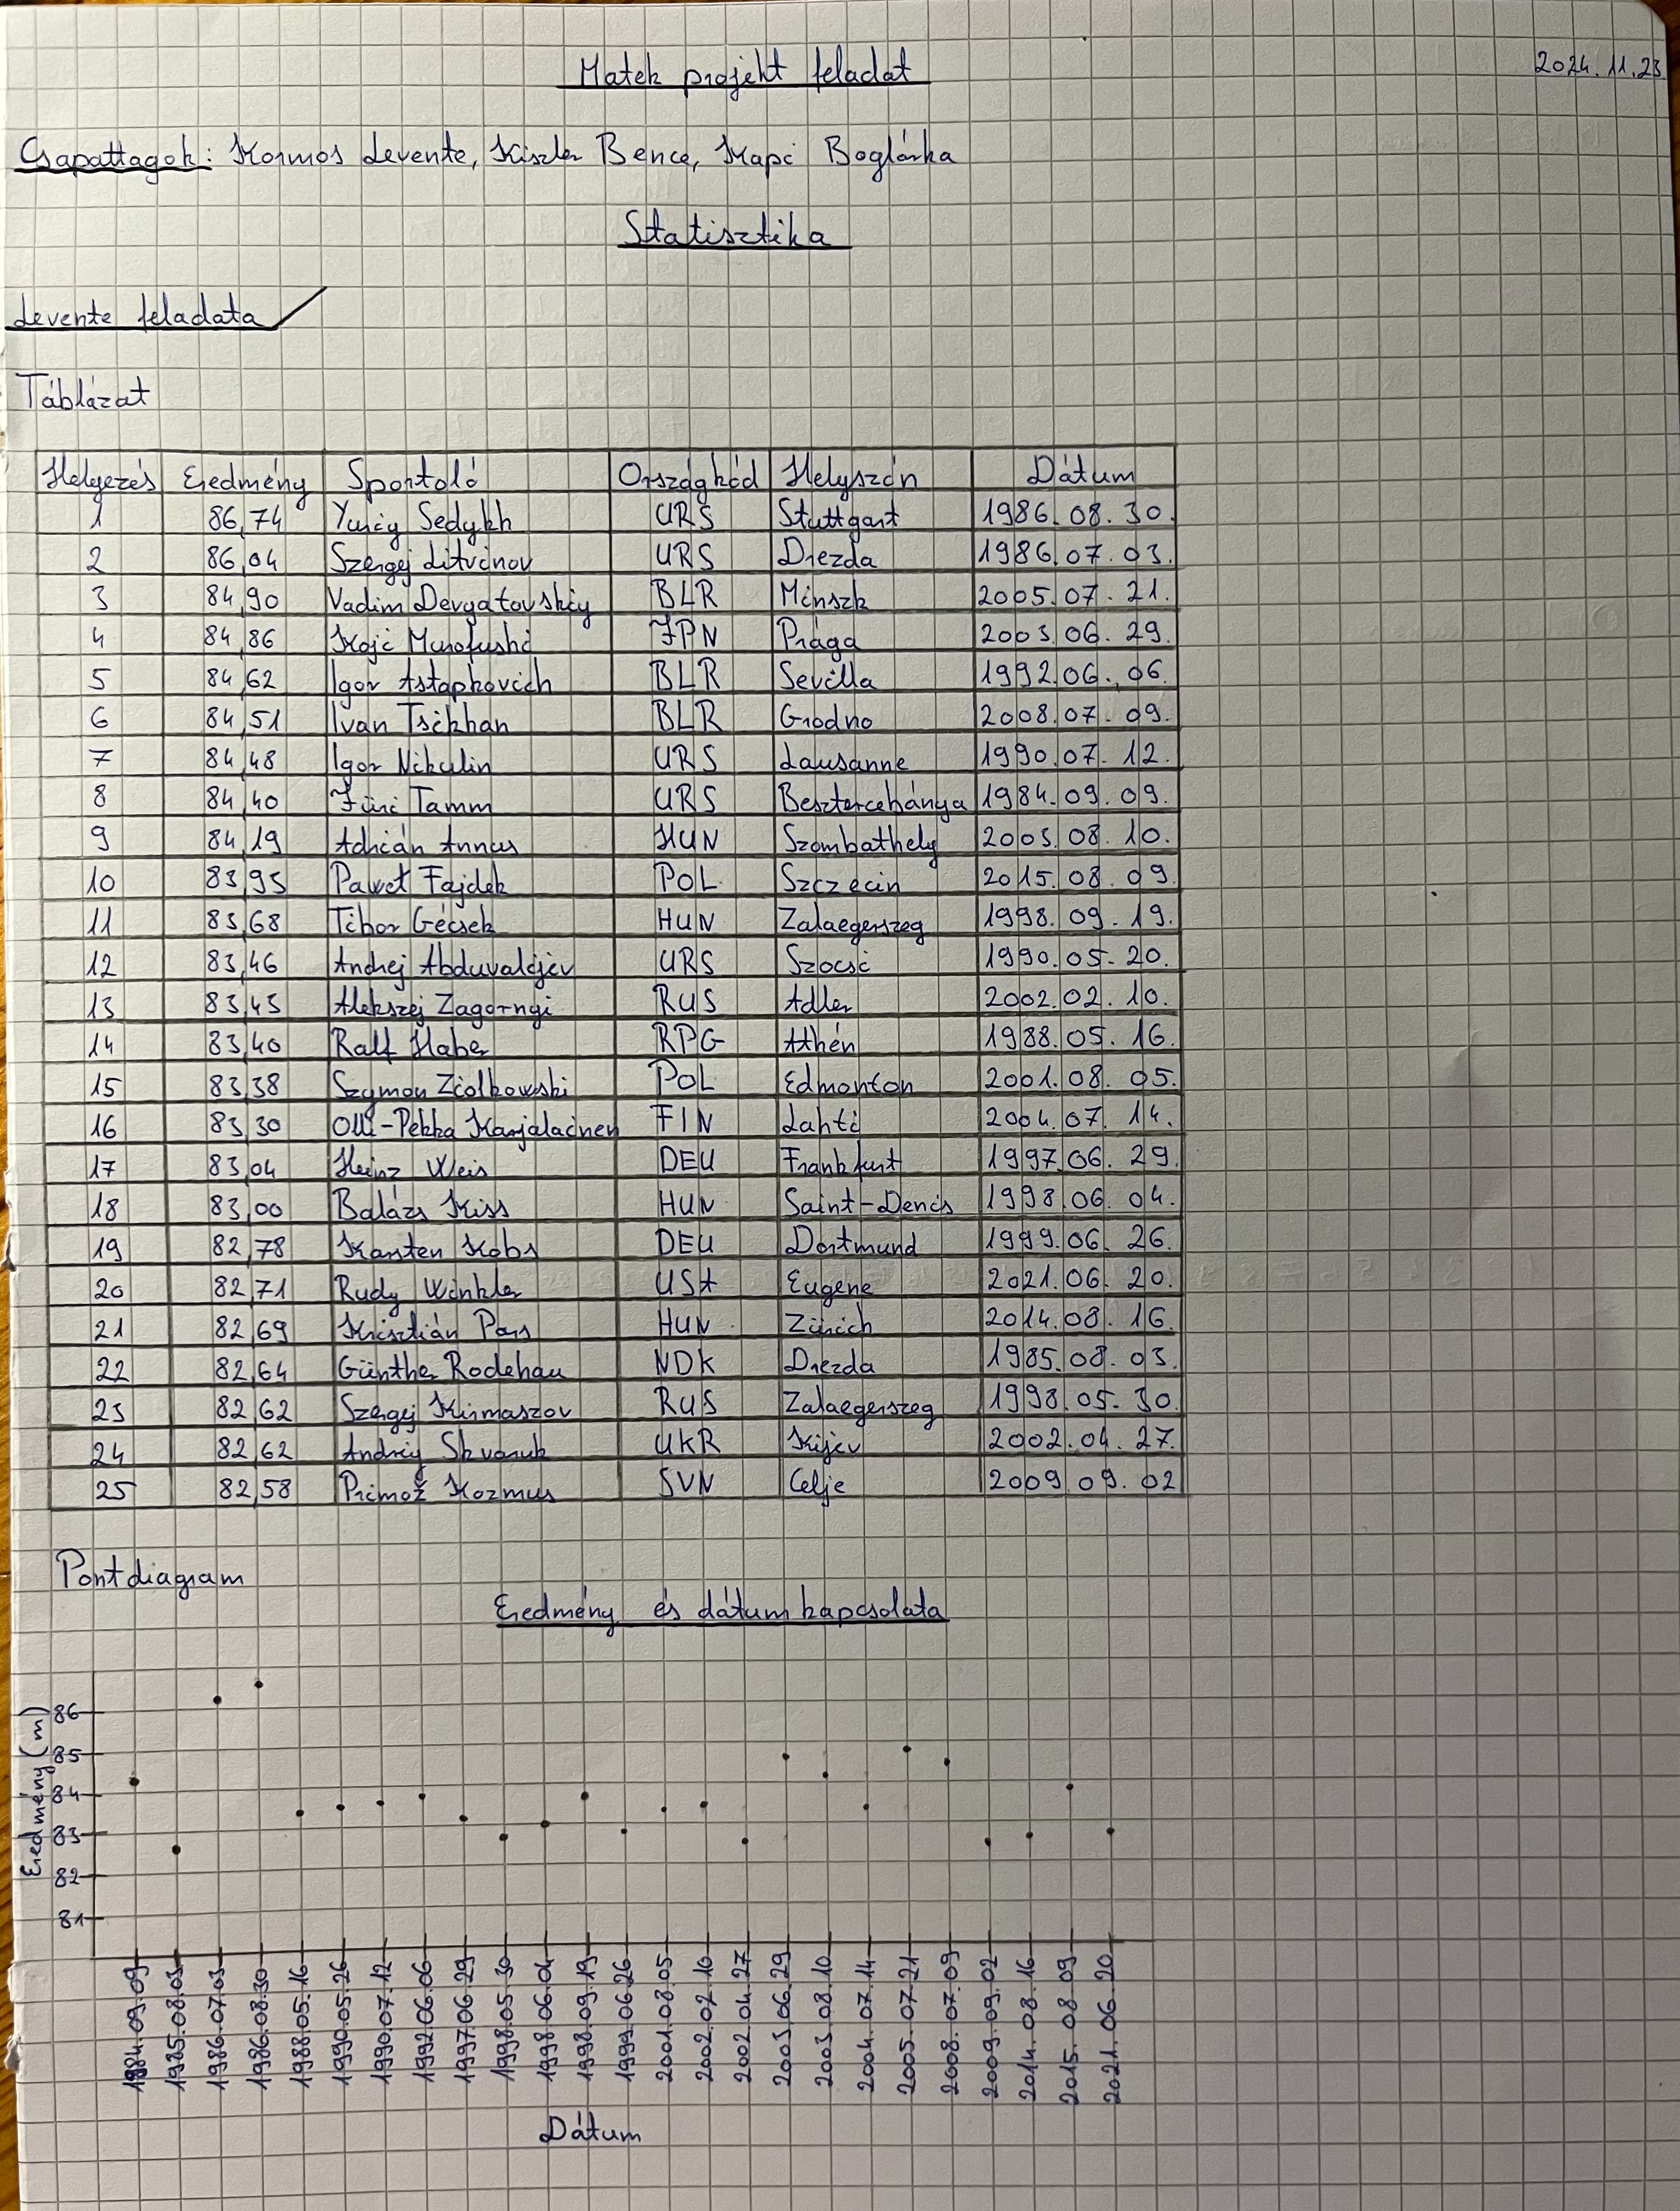 Matek projekt feladat
2024.11.23
Csapattagok: Kormos Levente, Kiszler Bence, Kapi Boglárka
Statisztika
Levente feladata
Táblázat
Helyezés Eredmény Sportoló Országkód Helyszín Dátum
1 86,74 Yuriy Sedykh URS Stuttgart 1986.08.30.
2 86,04 Szergej Litvinov URS Drezda 1986.07.03.
3 84,90 Vadim Devyatovskiy BLR Minszk 2005.07.21.
4 84,86 Koji Murofushi JPN Prága 2003.06.29.
5 84,62 Igor Astapkovich BLR Sevilla 1992.06.06.
6 84,51 Ivan Tsikhan BLR Grodno 2008.07.09.
7 84,48 Igor Nikulin URS Lausanne 1990.07.12.
8 84,40 Jüri Tamm URS Besztercebánya 1984.09.09.
9 84,19 Adrián Annus HUN Szombathely 2003.08.10.
10 83,93 Paweł Fajdek POL Szczecin 2015.08.09.
11 83,68 Tibor Gécsek HUN Zalaegerszeg 1998.09.19.
12 83,46 Andrej Abduvaljev URS Szocsi 1990.05.20.
13 83,43 Alekszej Zagornyi RUS Adler 2002.02.10.
14 83,40 Ralf Haber RPG Athén 1988.05.16.
15 83,38 Szymon Ziolkowski POL Edmonton 2001.08.05.
16 83,30 Olli-Pekka Karjalainen FIN Lahti 2004.07.14.
17 83,04 Heinz Weis DEU Frankfurt 1997.06.29.
18 83,00 Balázs Kiss HUN Saint-Denis 1998.06.04.
19 82,78 Karsten Kobs DEU Dortmund 1999.06.26.
20 82,71 Rudy Winkler USA Eugene 2021.06.20.
21 82,69 Krisztián Pars HUN Zürich 2014.08.16.
22 82,64 Günther Rodehau NDK Drezda 1985.08.03.
23 82,62 Szergej Kirmaszov RUS Zalaegerszeg 1998.05.30.
24 82,62 Andriy Skvaruk UKR Kijev 2002.04.27.
25 82,58 Primož Kozmus SVN Celje 2009.09.02
Pontdiagram
Eredmény és dátum kapcsolata
Eredmény (m)
86
85
84
83
82
81
1984.09.09 1985.08.03 1986.07.03 1986.08.30 1988.05.16 1990.05.26 1990.07.12 1992.06.06 1997.06.29 1998.05.30 1998.06.04 1998.09.19 1999.06.26 2001.08.05 2002.02.10 2002.04.27 2003.06.29 2003.08.10 2004.07.14 2005.07.21 2008.07.09 2009.09.02 2014.08.16 2015.08.09 2021.06.20
Dátum